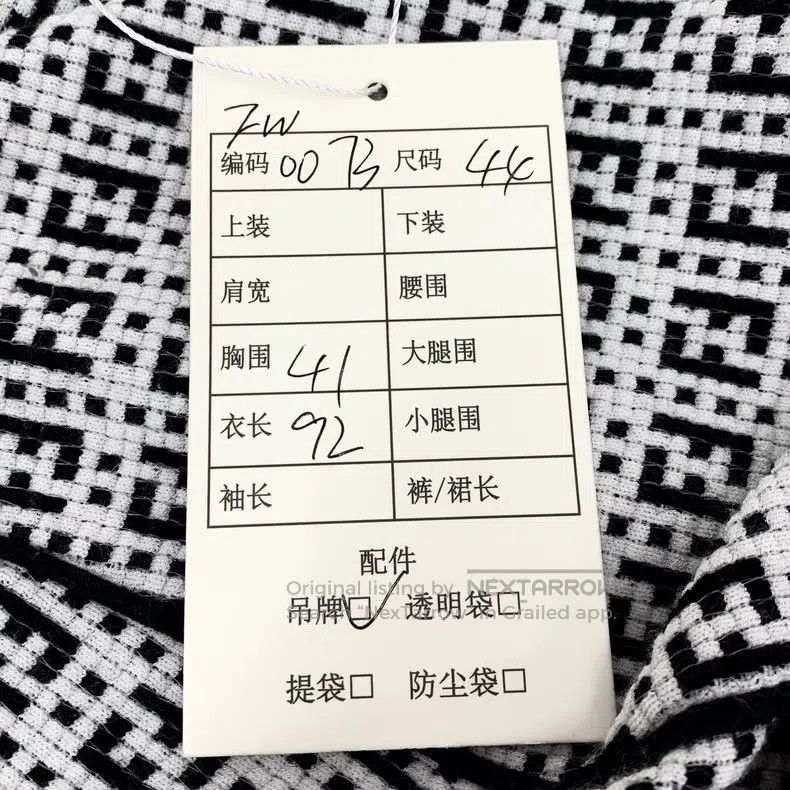 FW
编码 0073 尺码 44
上装 下装
肩宽 腰围
胸围 41 大腿围
衣长 92 小腿围
袖长 裤/裙长
配件
Original listing by NEXTARROW
吊牌☑ 透明袋□
in Grailed app.
提袋□ 防尘袋□